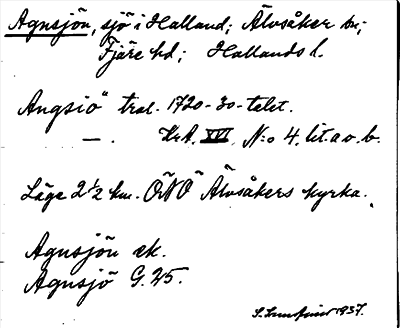 Agnsjön, sjö i Halland; Älvsåker sn;
Fjäre hd; Hallands l.
"Angsiö" tral. 1720-30-talet.
— . KrA. XVI, N:o 4. lit a o. b.
Läge 2 ½ km. ONO Älvsåkers kyrka.
Agnsjön ek.
Agnsjö G. 25.
1937.